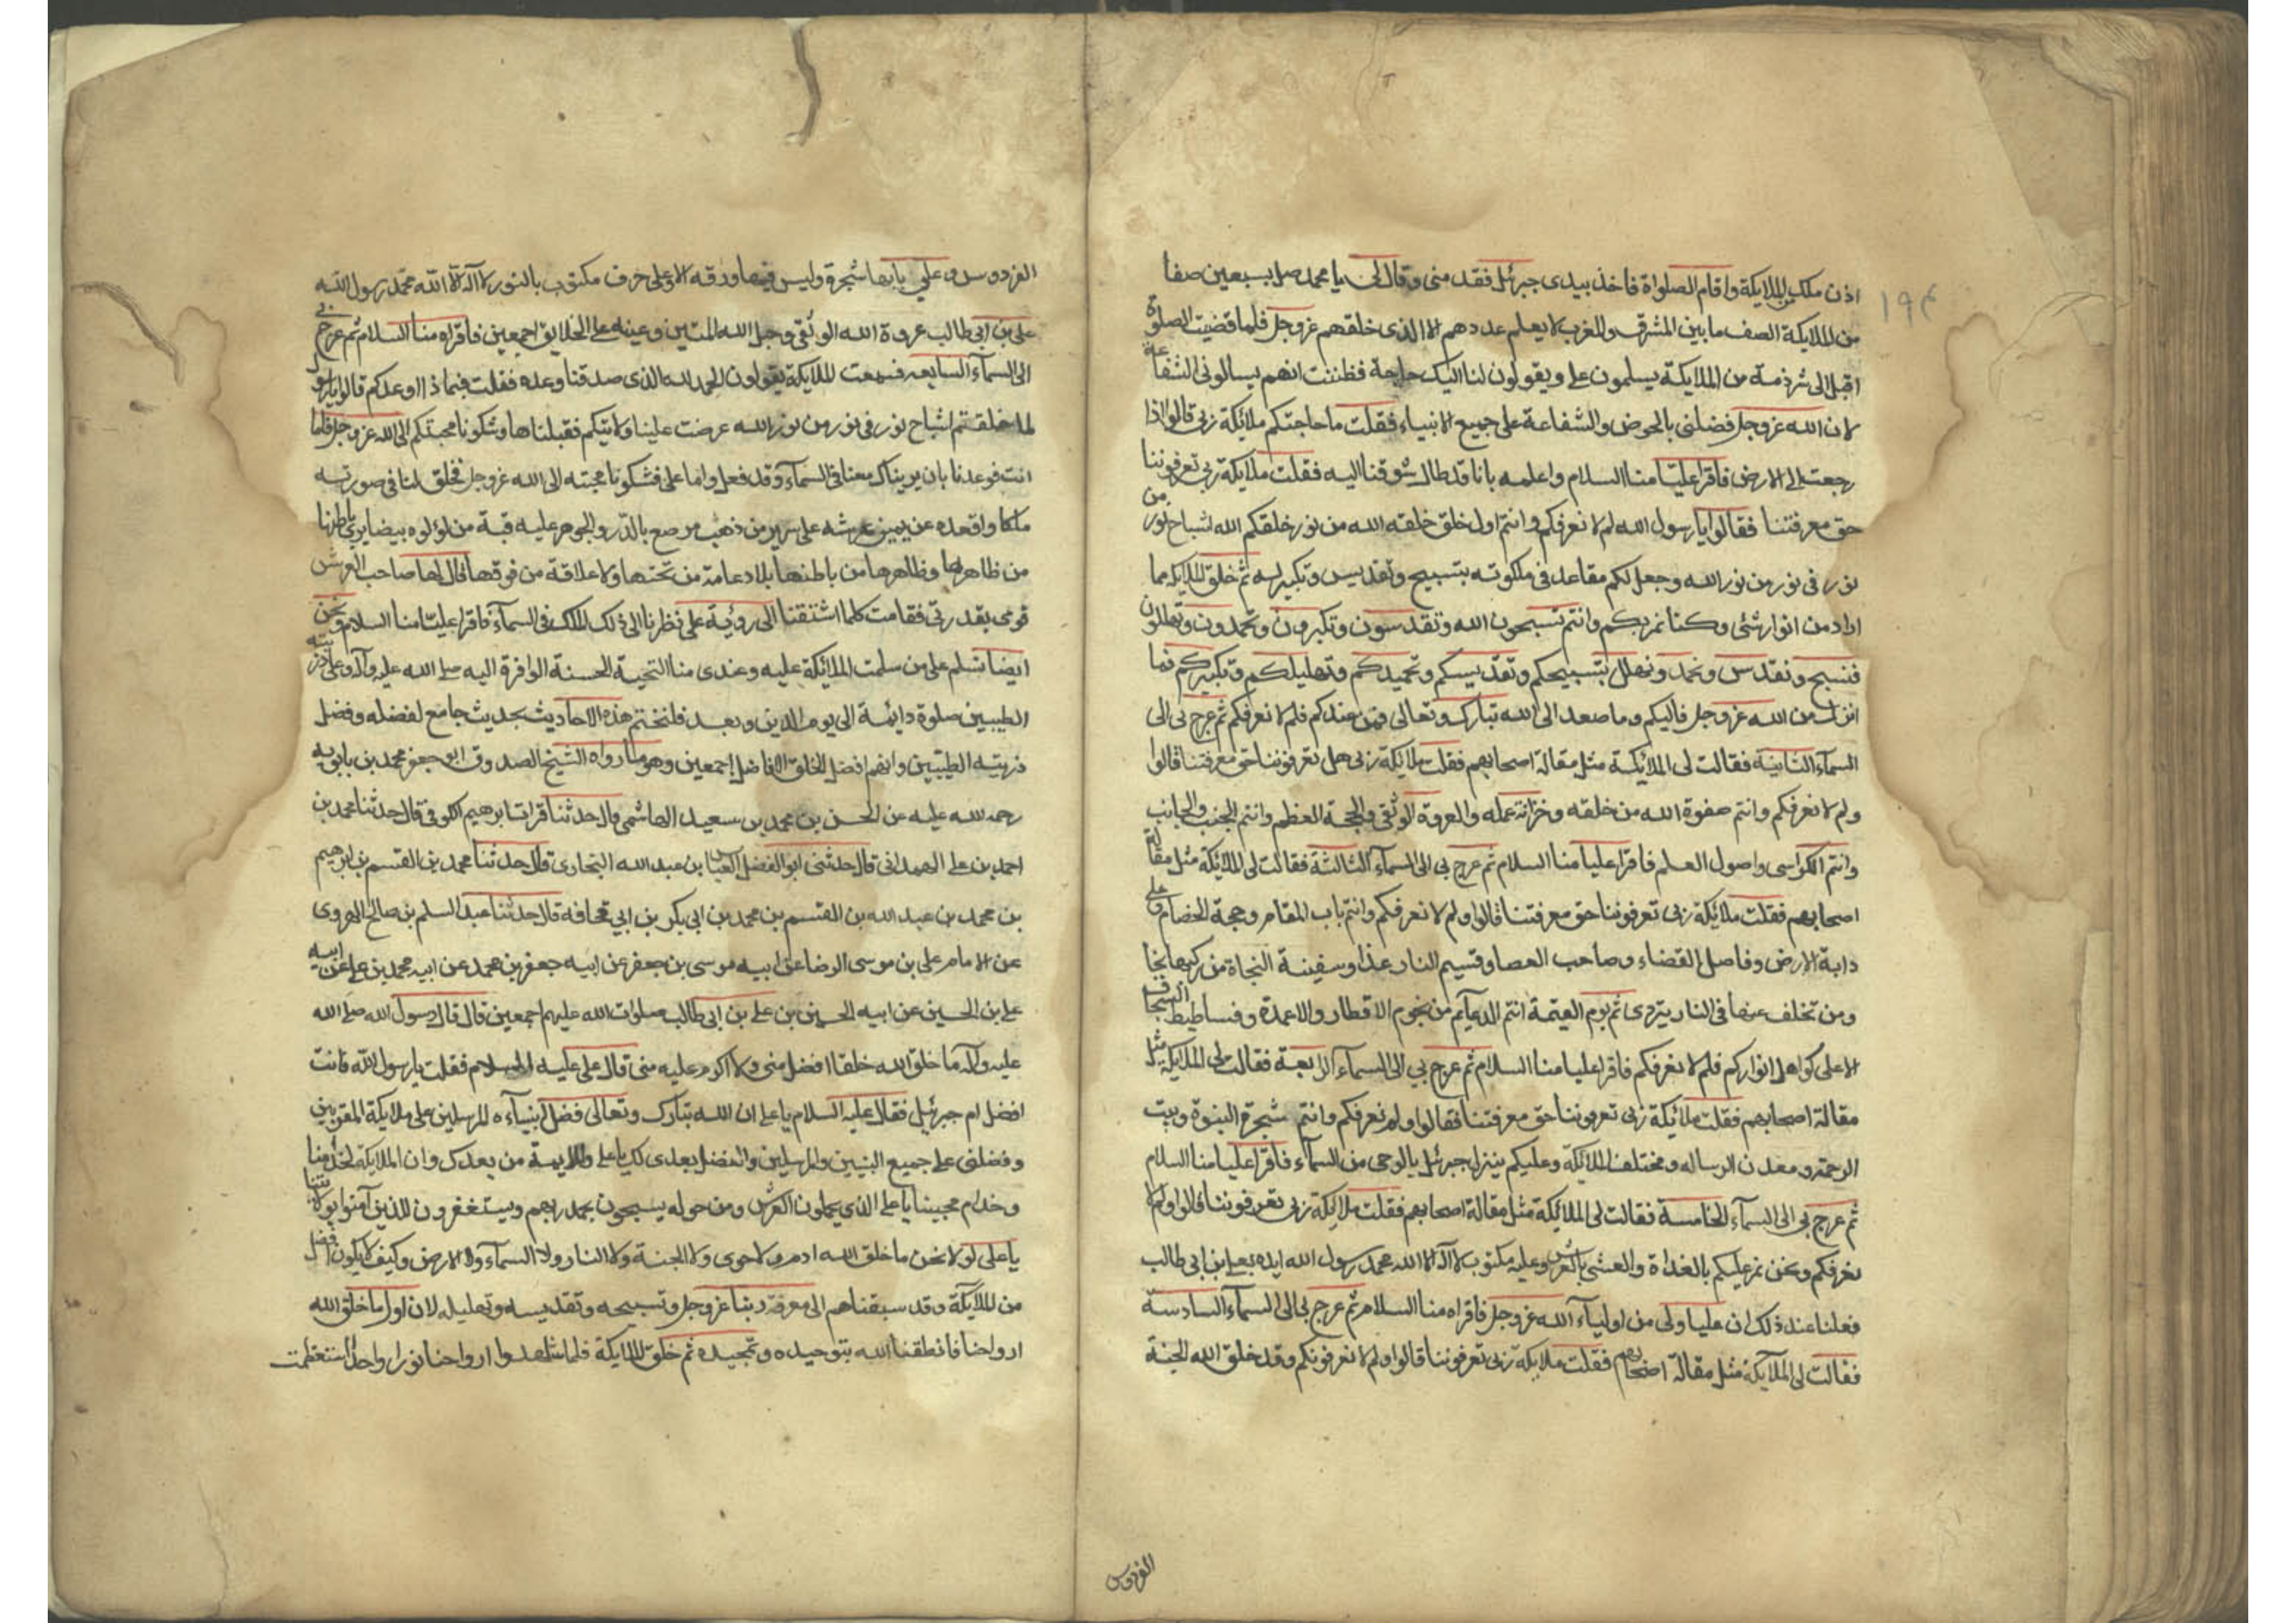 اذن ملك من الملايكة واقام الصلواة فاخذ بيدى جبرئيل فقد منى وقال لى يا محمد صل بسبعين صفا
١٩٤
من الملايكة الصف ما بين المشرق والمغرب لا يعلم عددهم الا الذى خلقهم عزوجل فلما قضيت الصلوة
اقبل الى شرذمة من الملايكة يسلمون على ويقولون لنا اليك حاجة فظننت انهم يسالونى الشفاعة
لان الله عزوجل فضلنى بالحوض والشفاعة على جميع الانبياء فقلت ما حاجتكم ملائكة ربى قالوا اذا
رجعت الى الارض فاقرا عليّا منا السلام واعلمه بانا قد طال شوقنا اليه فقلت ملايكة ربى تعرفوننا
حق معرفتنا فقالوا يا رسول الله لم لا نعرفكم وانتم اول خلق خلقه الله من نور خلقكم الله اشباح نور من
نور فى نور من نور الله وجعل لكم مقاعد فى ملكوته بتسبيح وتقديس وتكبير له ثم خلق الملايكة مما
اراد من انوار شتى وكنا نمر بكم وانتم تسبحون الله وتقدسون وتكبرون وتحمدون وتهللون
فنسبح ونقدس ونحمد ونهلل بتسبيحكم وتقديسكم وتحميدكم وتهليلكم وتكبيركم فما
انزل من الله عزوجل فاليكم وما صعد الى الله تبارك وتعالى فمن عندكم فلم لا نعرفكم ثم عرج بى الى
السماء الثانية فقالت لى الملائكة مثل مقالة اصحابهم فقلت ملائكة ربى هل تعرفوننا حق معرفتنا قالوا
ولم لا نعرفكم وانتم صفوة الله من خلقه وخزانة علمه والعروة الوثقى والحجة العظم وانتم الجنب والجانب
وانتم الكراسى واصول العلم فاقرا عليا منا السلام ثم عرج بى الى السماء الثالثة فقالت لى الملائكة مثل مقالة
اصحابهم فقلت ملائكة ربى تعرفوننا حق معرفتنا قالوا ولم لا نعرفكم وانتم باب المقام وحجة الخصام وعلى
دابة الارض وفاصل القضاء وصاحب العصا وقسيم النار غدا وسفينة النجاة من ركبها نجا
ومن تخلف عنها فى النار يتردى ثم يوم القيمة انتم الدعآيم من نجوم الاقطار والاعمدة وفساطيط السجاف
الاعلى كواهل انواركم فلم لا نعرفكم فاقرا عليا منا السلام ثم عرج بي الى السماء الرابعة فقالت لى الملايكة مثل
مقالة اصحابهم فقلت ملائكة ربى تعرفوننا حق معرفتنا فقالوا ولم نعرفكم وانتم شجرة النبوة وبيت
الرحمة ومعدن الرساله ومختلف الملائكة وعليكم ينزل جبرئيل بالوحى من السماء فاقرا عليا منا السلام
ثم عرج بى الى السماء الخامسة فقالت لى الملائكة مثل مقالة اصحابهم فقلت ملائكة ربى تعرفوننا قالوا ولم لا
نعرفكم ونحن نمر عليكم بالغداة والعشى بالعرش وعليه مكتوب لا اله الا الله محمد رسول الله ايده بعلى ابن ابى طالب
فعلمنا عند ذلك ان عليا ولى من اولياء الله عزوجل فاقراه منا السلام ثم عرج بى الى السماء السادسة
فقالت لى الملآيكة مثل مقالة اصحابهم فقلت ملايكة ربى تعرفوننا قالوا ولم لا نعرفونكم وقد خلق الله الجنة
الفردوس
الفردوس وعلي بابها شجرة وليس فيها ورقه الا وعلى حرف مكتوب بالنور لا اله الا الله محمد رسول الله
على بن ابى طالب عروة الله الوثقى وحبل الله المتين وعينه على الخلايق اجمعين فاقراه منا السلام ثم عرج بى
الى السماء السابعه فسمعت الملايكة يقولون الحمد لله الذى صدقنا وعده فقلت فبما ذا اوعدكم قالوا يا رسول
لما خلقتم اشباح نور فى نور من نور الله عرضت علينا ولايتكم فقبلناها وشكونا محبتكم الى الله عزوجل فاما
انت فوعدنا بان يريناك معنا فى السماء وقد فعل واما على فشكونا محبته الى الله عزوجل فخلق لنا فى صورته
ملكا واقعده عن يمين عرشه على سرير من ذهب مرصع بالدر والجوهر عليه قبة من لؤلوه بيضا يرى باطنها
من ظاهرها وظاهرها من باطنها بلا دعامة من تحتها ولا علاقة من فوقها قال لها صاحب العرش
قومى بقدرتى فقامت كلما اشتقنا الى روئية على نظرنا الى ذلك الملك فى السماء فاقرا عليّا منا السلام ونحن
ايضا نسلم على من سلمت الملائكة عليه وعندى منا التحية الحسنة الوافرة اليه صلى الله عليه وآله وعلى ذريته
الطيبين صلوة دائمة الى يوم الدين وبعد فلنختم هذه الاحاديث بحديث جامع لفضله وفضل
ذريته الطيبين وانهم افضل الخلق الافاضل اجمعين وهو ما رواه الشيخ الصدوق ابو جعفر محمد بن بابويه
رحمه الله عليه عن الحسن بن محمد بن سعيد الهاشمى قال حدثنا فرات ابرهيم الكوفى قال حدثنا محمد بن
احمد بن على الهمدانى قال حدثنى ابو الفضل العباس بن عبد الله البخارى قال حدثنا محمد بن القسم بن ابرهيم
بن محمد بن عبد الله بن القسم بن محمد بن ابى بكر بن ابي قحافه قال حدثنا عبد السلم بن صالح الهروى
عن الامام على بن موسى الرضا عن ابيه موسى بن جعفر عن ابيه جعفر بن محمد عن ابيه محمد بن على عن ابيه
على بن الحسين عن ابيه الحسين بن على بن ابى طالب صلوات الله عليهم اجمعين قال قال رسول الله صلى الله
عليه وآله ما خلق الله خلقا افضل منى ولا اكرم عليه منى قال على عليه السلام فقلت يا رسول الله فانت
افضل ام جبرئيل فقال عليه السلام يا على ان الله تبارك وتعالى فضل انبياءه المرسلين على ملايكة المقربين
وفضلنى على جميع النبيين والمرسلين والفضل بعدى لك يا على وللايمة من بعدك وان الملايكة لخدامنا
وخدام محبينا يا على الذى يحملون العرش ومن حوله يسبحون بحمد ربهم ويستغفرون للذين آمنوا بولايتنا
يا على لولا نحن ما خلق الله ادم ولا حوى ولا الجنة ولا النار ولا السماء ولا الارض وكيف لا يكون افضل
من الملايكة وقد سبقناهم الى معرفة ربنا عزوجل وتسبيحه وتقديسه وتهليله لان اول ما خلق الله
ارواحنا فانطقنا الله بتوحيده وتمجيده ثم خلق الملايكة فلما شاهدوا ارواحنا نورا واحدا استعظمت